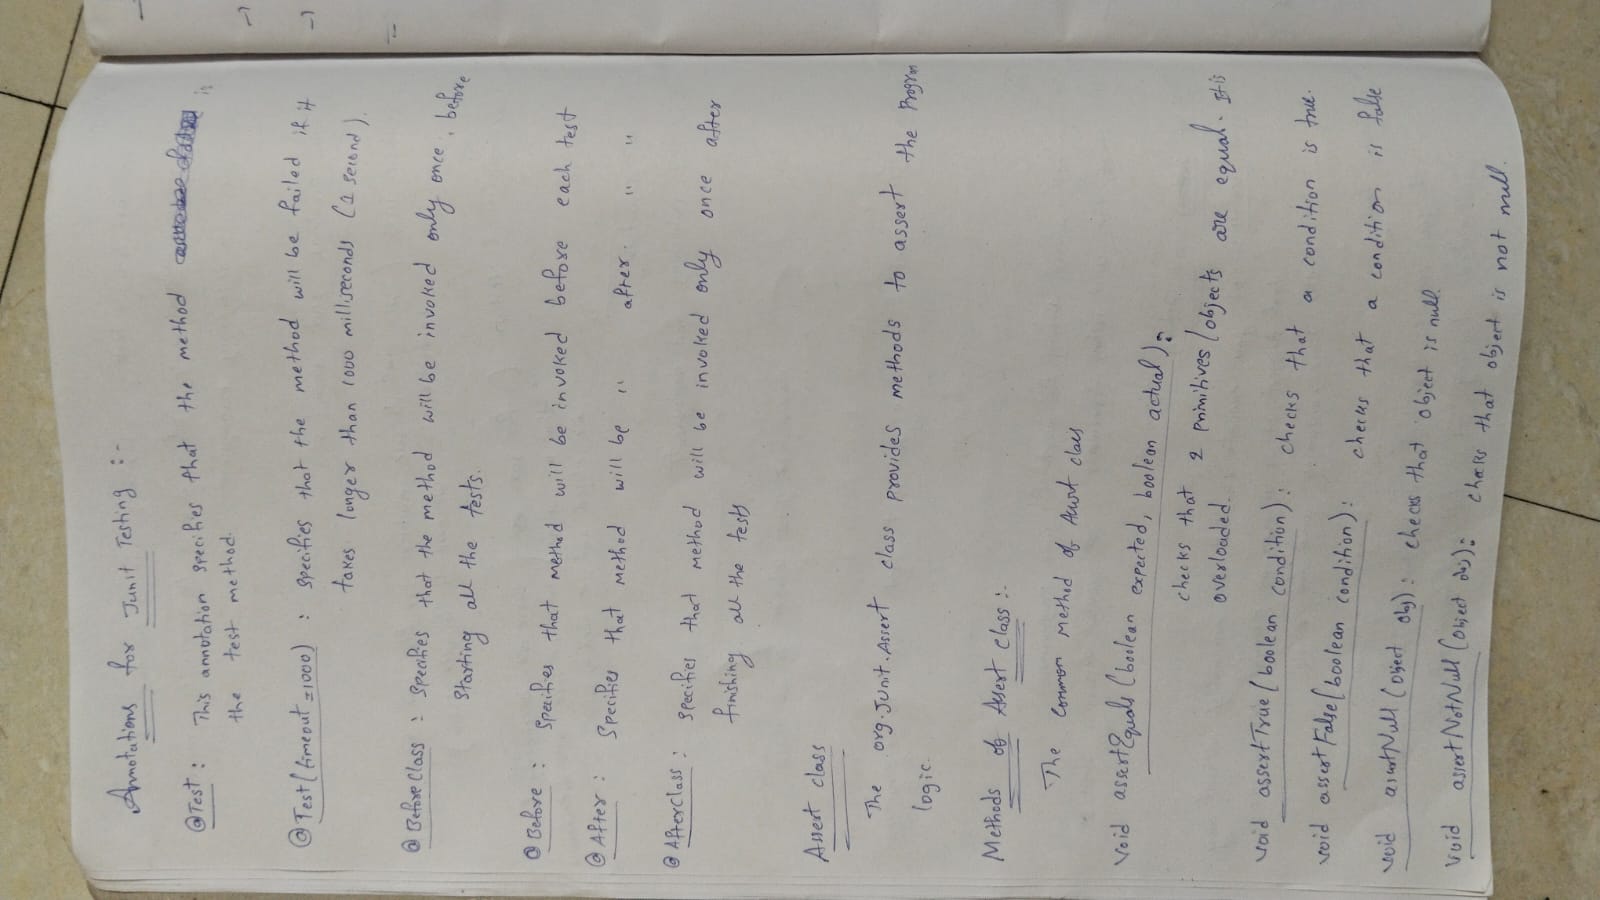 Annotations for Junit Testing :-
@Test : This annotation specifies that the method is
the test method.
@Test(timeout=1000) : specifies that the method will be failed if it
takes longer than 1000 milliseconds (1 second).
@BeforeClass : specifies that the method will be invoked only once, before
starting all the tests.
@Before : specifies that method will be invoked before each test
@After : specifies that method will be " after. " "
@AfterClass : specifies that method will be invoked only once after
finishing all the tests
Assert class
The org.Junit.Assert class provides methods to assert the Program
logic.
Methods of Assert class :.
The common method of Assert class
void assertEquals (boolean expected, boolean actual) :
checks that 2 primitives/objects are equal. It is
overloaded.
void assertTrue (boolean condition) : checks that a condition is true.
void assertFalse (boolean condition) : checks that a condition is false
void assertNull (Object obj) : checks that object is null.
void assertNotNull (Object obj) : checks that object is not null.